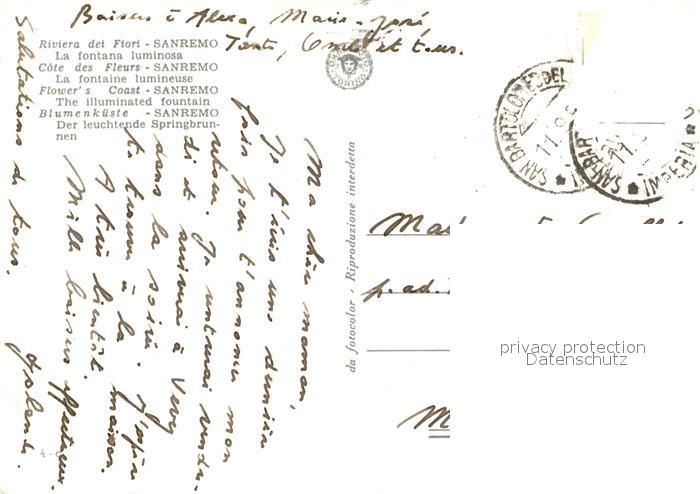 Baisers à Alexa, Marie-José
Tante, et tous.
Riviera dei Fiori - SANREMO
La fontana luminosa
Côte des Fleurs - SANREMO
La fontaine lumineuse
Flower's Coast - SANREMO
The illuminated fountain
Blumenküste - SANREMO
Der leuchtende Springbrun-
nen
Ma chère maman,
Je t'écris une dernière
fois pour t'annoncer mon
retour. Je rentrerai vendre-
di et arriverai à Vevey
dans la soirée. J'espère
te trouver à la maison.
A très bientôt.
Mille baisers affectueux.
Yolande.
Salutations à tous.
da fotocolor - Riproduzione interdetta
SAN BARTOLOMEO DEL
IMPERIA
p. ad.
M
privacy protection
Datenschutz